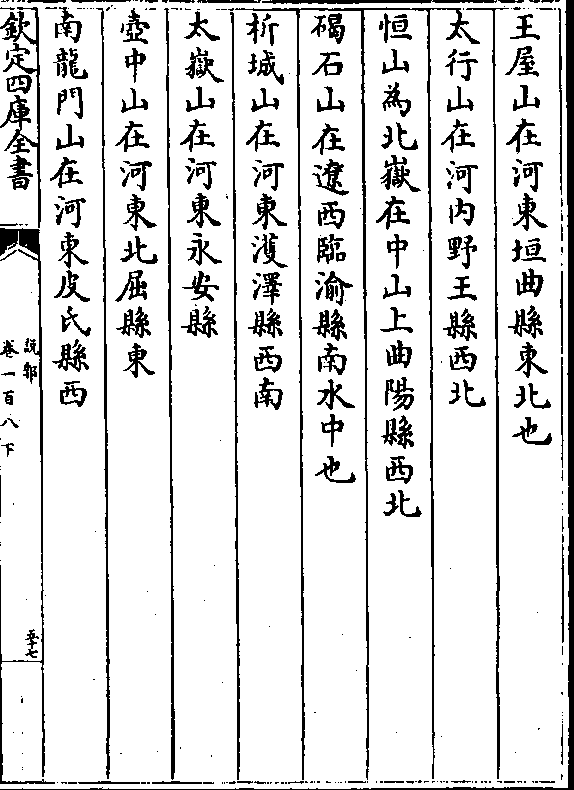 王屋山在河東垣曲縣東北也
太行山在河內野王縣西北
恒山為北嶽在中山上曲陽縣西北
碣石山在遼西臨渝縣南水中也
析城山在河東濩澤縣西南
太嶽山在河東永安縣
壺中山在河東北屈縣東
南龍門山在河東皮氏縣西
欽定四庫全書
說郛
卷一百八下
五十七